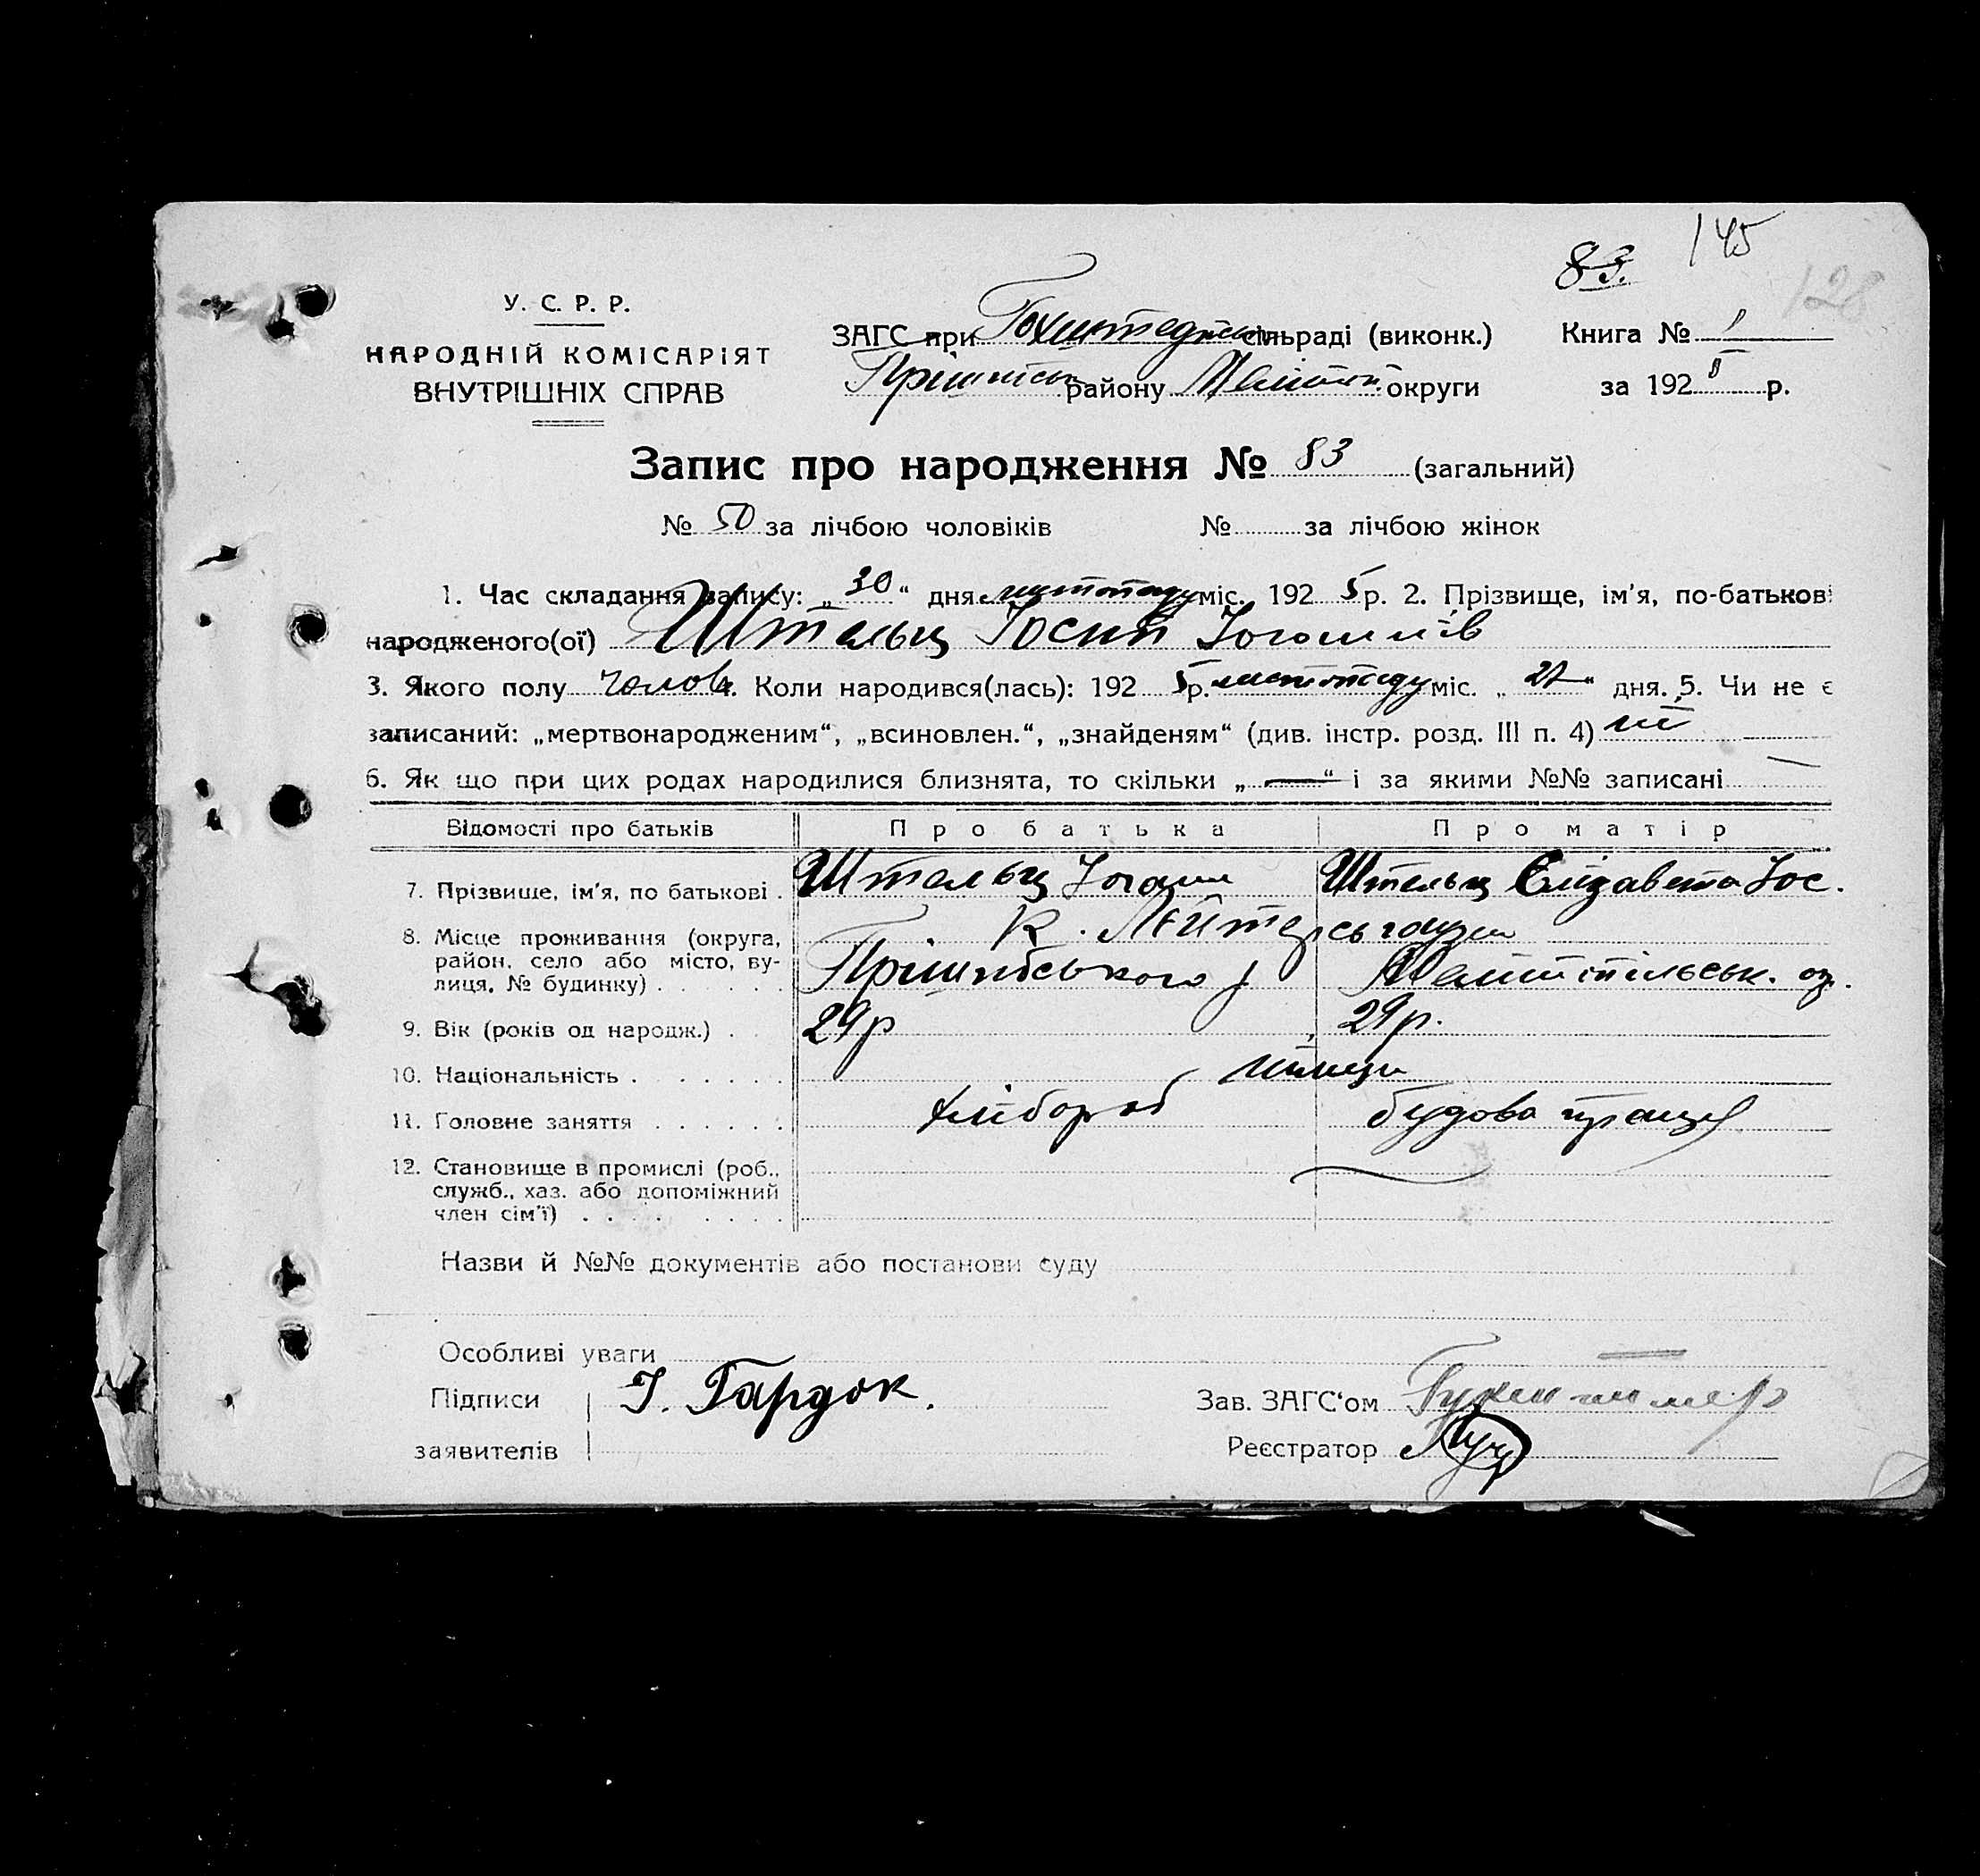 83. 145
128
У. С. Р. Р.
НАРОДНІЙ КОМІСАРІЯТ
ВНУТРІШНІХ СПРАВ
ЗАГС при Гохштедськ сільраді (виконк.) Книга № 1
Прішибськ району Меліт. округи за 192 р.
Запис про народження № 83 (загальний)
№ 50 за лічбою чоловіків № за лічбою жінок
1. Час складання запису: „30“ дня листопаду міс. 1925 р. 2. Прізвище, ім'я, по-батькові
народженого(ої) Штельц Йосип Йоганнів
3. Якого полу чолов. 4. Коли народився(лась): 1925 р. листопаду міс. „27“ дня. 5. Чи не є
записаний: „мертвонародженим“, „всиновлен.“, „знайденям“ (див. інстр. розд. III п. 4) ні
6. Як що при цих родах народилися близнята, то скільки „—“ і за якими №№ записані —
Відомості про батьків Про батька Про матір
7. Прізвище, ім'я, по батькові . Штельц Йоганн Штельц Єлізавета Йос.
8. Місце проживання (округа, район, село або місто, вулиця, № будинку) . . . . . . к. Лейтерсьгаузен
Прішибського р Мелітопільськ. окр.
9. Вік (років од народж.) . . 29р 29р.
10. Національність . . . . . . німци
11. Головне заняття . . . . . . хлібороб будова праця
12. Становище в промислі (роб.,
служб., хаз. або допоміжний
член сім'ї) . . . . . . . .
Назви й №№ документів або постанови суду
Особливі уваги —
Підписи І. Гардок. Зав. ЗАГС'ом
заявителів Реєстратор